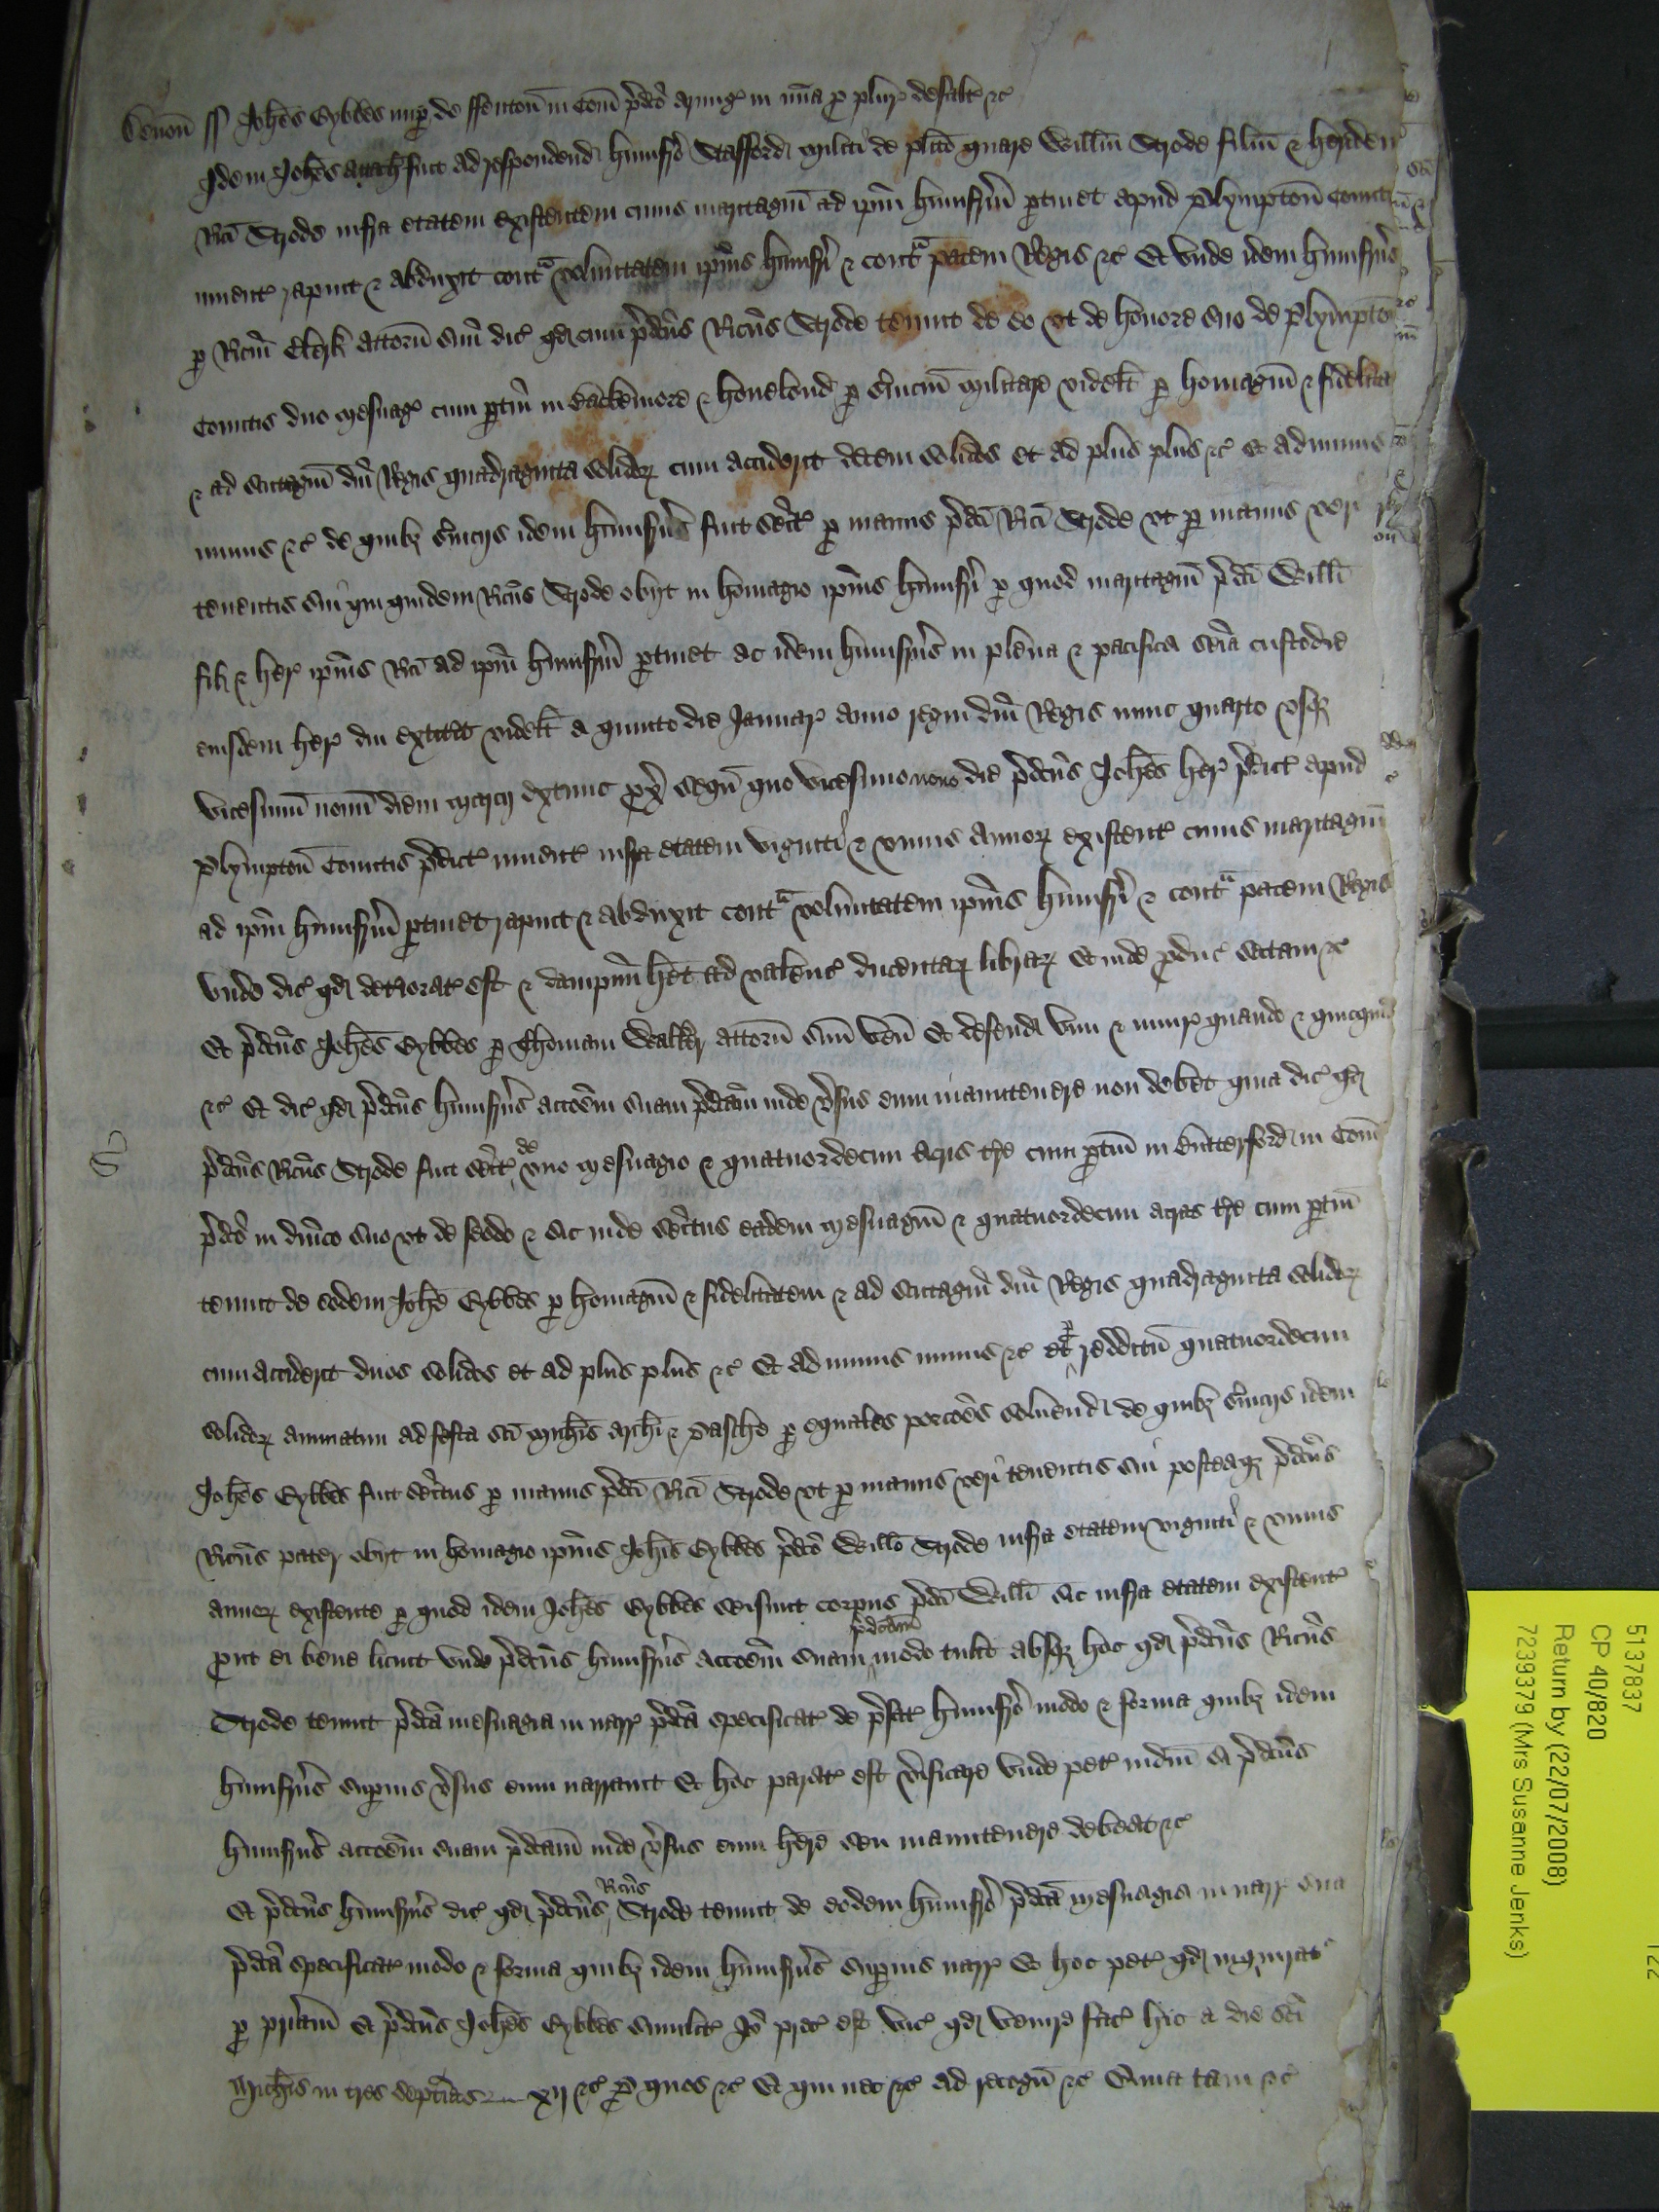 Devon ss Johes Gybbes nup de ffenton in Com pdco armig in mia p plur defalt &c
Idem Johes attach fuit ad respondend Humfro Stafford militi de plito quare Willm Strode filiu & heredem
Rici Strode infra etatem existentem cuius maritagiu ad ipm Humfrm ptinet apud Plympton Comit
inuent rapuit & abduxit contra voluntatem ipius Humfri & contra pacem Regis &c Et vnde idem Humfrus
p Ricm Clerk attorn suu dic qd cum pdcus Ricus Strode tenuit de eo vt de honore suo de Plympton
Comitis duo mesuag cum ptin in & p seruiciu militare videlt p homagiu & fidelita
& ad scutagiu dni Regis quadraginta solidor cum acciderit decem solidos et ad plus plus &c et ad minus
minus &c de quibz seruicijs idem Humfrus fuit seit p manus pdci Rici Strode vt p manus veri
tenentis sui qui quidem Ricus Strode obijt in homagio ipius Humfri p quod maritagiu pdci Willi
fil & her ipius Rici ad ipm Humfrm ptinet ac idem Humfrus in plena & pacifica seina custodie
eiusdem her diu extitit videlt a quinto die Januar anno regni dni Regis nunc quarto vsqz
vicesimu nonu diem marcij extunc px sequ quo vicesimo nono die pdcus Johes her pdict apud
Plympton Comitis pdict inuent infra etatem viginti & vnius annor existent cuius maritagiu
ad ipm Humfrm ptinet rapuit & abduxit contra voluntatem ipius Humfri & contra pacem Regis
vnde dic qd deteriorat est & dampnu het ad valenc ducentar librar Et inde pduc sectam &c
Et pdcus Johes Gybbes p Thomam Walker attorn suu ven Et defend vim & iniur quando & quicquid
&c Et dic qd pdcus Humfrus accoem suam pdcam inde vsus eum manutenere non debet quia dic qd
pdcus Ricus Strode fuit seit de vno mesuagio & quatuordecim acris tre cum ptin in Butterford in Com
pdco in dnico suo vt de feodo & sic inde seitus eadem mesuagiu & quatuordecim acras tre cum ptin
tenuit de eodem Johe Gybbes p homagiu & fidelitatem & ad scutagiu dni Regis quadraginta solidor
cum acciderit duos solidos et ad plus plus &c Et ad minus minus &c et p redditu quatuordecim
solidor annuatim ad festa sci Michis Archi & Pasche p equales porcoes soluend de quibz seruicijs idem
Johes Gybbes fuit seitus p manus pdci Rici Strode vt p manus veri tenentis sui posteaqz pdcus
Ricus pater obijt in homagio ipius Johis Gybbes pdco Willo Strode infra etatem viginti & vnius
annor existente p quod idem Johes Gybbes seisiuit corpus pdci Willi sic infra etatem existent
put ei bene licuit vnde pdcus Humfrus accoem suam pdcam modo tulit absqz hoc qd pdcus Ricus
Strode tenuit pdca mesuagia in narr pdca specificat de pfat Humfro modo & forma quibz idem
Humfrus supius vsus eum narrauit Et hoc parat est vificare vnde pet iudm si pdcus
Humfrus accoem suam pdcam inde vsus eum here seu manutenere debeat &c
Et pdcus Humfrus dic qd pdcus Ricus Strode tenuit de eodem Humfro pdca mesuagia in narr sua
pdca specificat modo & forma quibz idem Humfrus supius narr Et hoc pet qd inquirat
p priam Et pdcus Johes Gybbes similit Io prec est vic qd venire fac hic a die sci
Michis in tres septias xij &c p quos &c Et qui nec &c ad recogn &c Quia tam &c
5137837
CP 40/820
Return by (22/07/2008)
7239379 (Mrs Susanne Jenks)